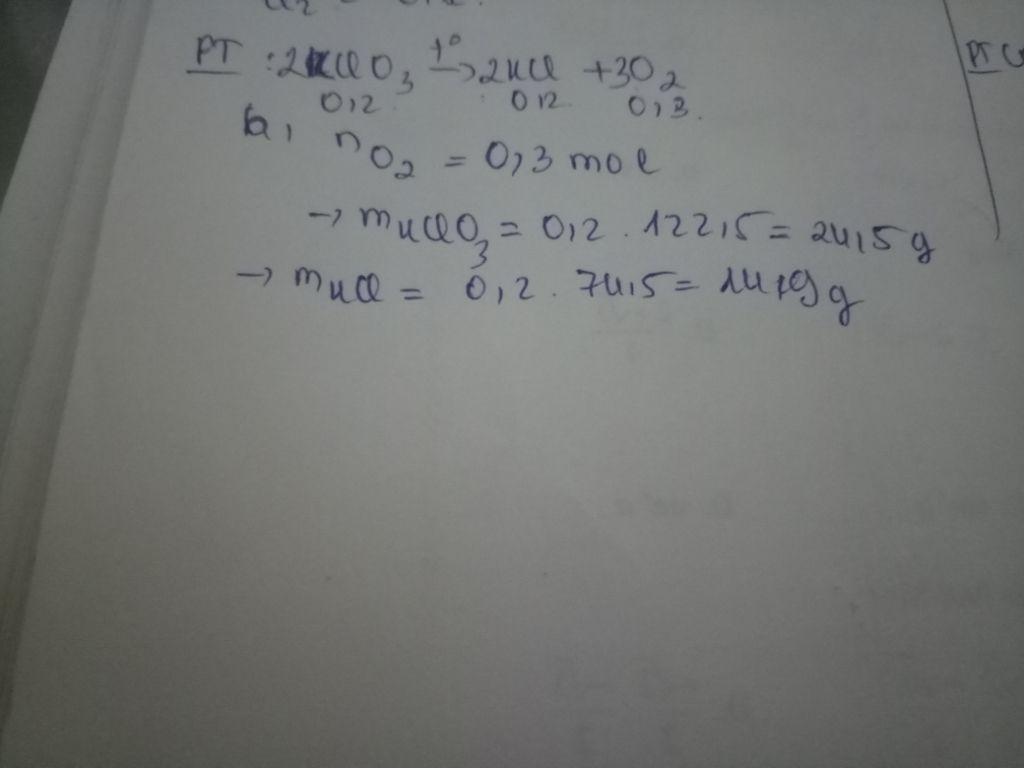 PT : 2KClO3 t°→ 2KCl + 3O2
0,2 0,2 0,3.
b, nO2 = 0,3 mol
→ mKClO3 = 0,2 . 122,5 = 24,5 g
→ mKCl = 0,2 . 74,5 = 14,9 g
PT